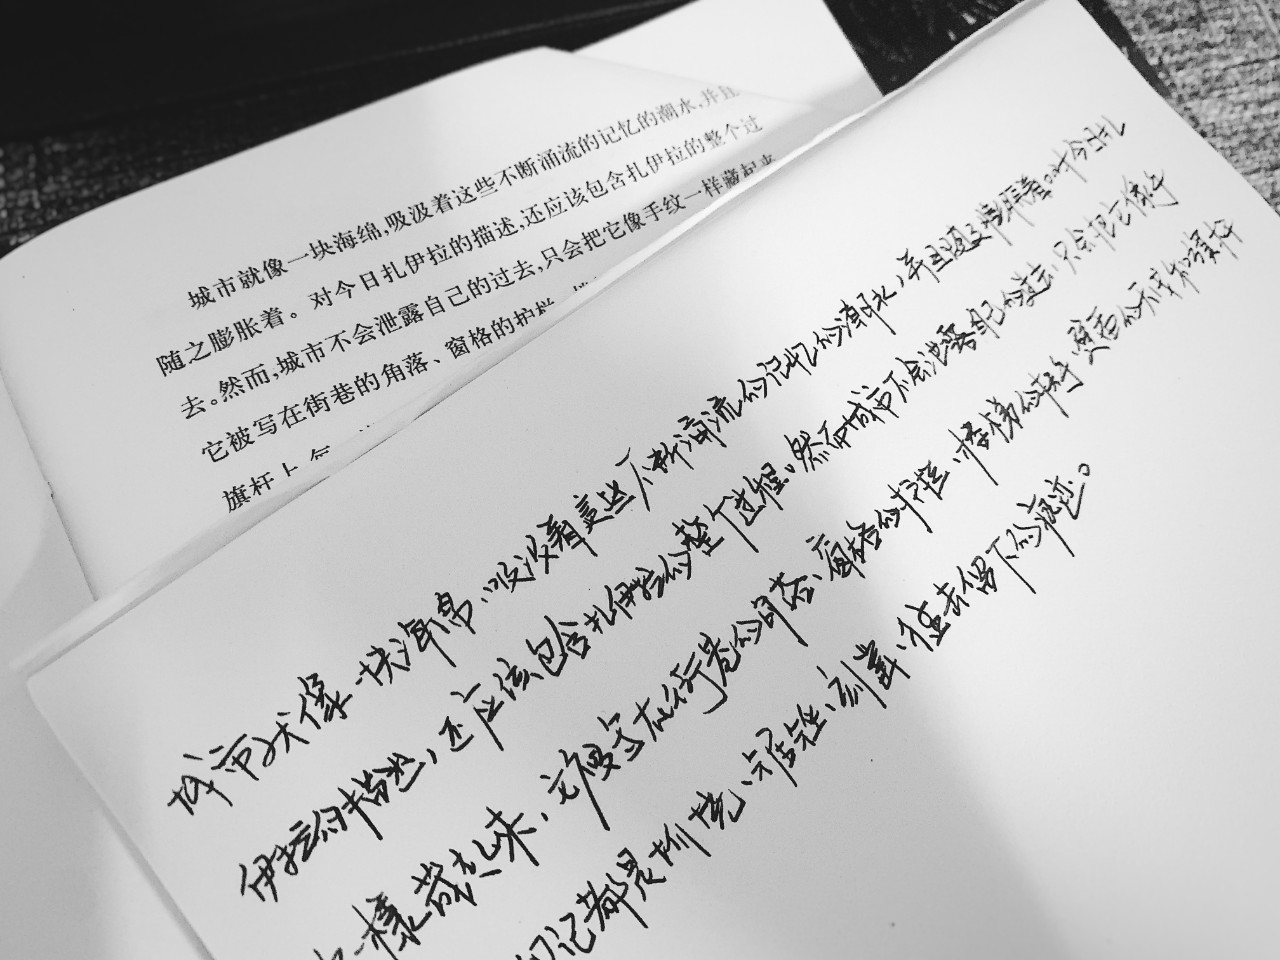 城市就像一块海绵,吸汲着这些不断涌流的记忆的潮水,并且
随之膨胀着。对今日扎伊拉的描述,还应该包含扎伊拉的整个过
去。然而,城市不会泄露自己的过去,只会把它像手纹一样藏起来
它被写在街巷的角落、窗格的护栏
旗杆上
城市就像一块海绵,吸汲着这些不断涌流的记忆的潮水,并且随之膨胀着。对今日扎
伊拉的描述,还应该包含扎伊拉的整个过程。然而城市不会泄露自己的过去,只会把它像手
一样藏起来,它被写在街巷的角落、窗格的护栏、楼梯的扶手、
记都是锯、留下的痕迹。